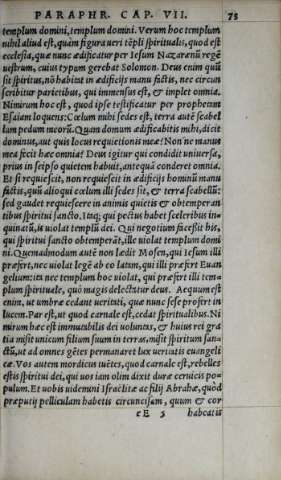 PARAPHR. CAP. VII. 75
templum domini, templum domini. Verum hoc templum
nihil aliud est, quàm figura ueri tẽpli spiritualis, quod est
ecclesia, quæ nunc ædificatur per Iesum Nazarænũ regẽ
uestrum, cuius typum gerebat Solomon. Deus enim quũ
sit spiritus, nõ habitat in ædificijs manu factis, nec circun
scribitur parietibus, qui immensus est, & implet omnia.
Nimirum hoc est, quod ipse testificatur per prophetam
Esaiam loquens: Cœlum mihi sedes est, terra autẽ scabel
lum pedum meorũ. Quam domum ædificabitis mihi, dicit
dominus, aut quis locus requietionis meæ? Nonne manus
mea fecit hæc omnia? Deus igitur qui condidit uniuersa,
prius in seipso quietem habuit, antequã conderet omnia.
Et si requiescit, non requiescit in ædificijs hominũ manu
factis, quũ alioqui cœlum illi sedes sit, & terra scabellũ:
sed gaudet requiescere in animis quietis & obtemperan
tibus spiritui sancto. Itaq; qui pectus habet sceleribus in-
quinatũ, is uiolat templũ dei. Qui negotium facessit his,
qui spiritui sancto obtemperãt, ille uiolat templum domi
ni. Quemadmodum autẽ non lædit Mosen, qui Iesum illi
præfert, nec uiolat legẽ ab eo latam, qui illi præfert Euan
gelium: ita nec templum hoc uiolat, qui præfert illi tem-
plum spirituale, quò magis delectatur deus. Aequum est
enim, ut umbræ cedant ueritati, quæ nunc sese profert in
lucem. Par est, ut quod carnale est, cedat spiritualibus. Ni
mirum hæc est immutabilis dei uoluntas, & huius rei gra
tia misit unicum filium suum in terras, misit spiritum san-
ctũ, ut ad omnes gẽtes permanaret lux ueritatis euangeli
cæ. Vos autem mordicus tuẽtes, quod carnale est, rebelles
estis spiritui dei, qui uos iam olim dixit duræ ceruicis po-
pulum. Et uobis uidemini Israëlitæ ac filij Abrahæ, quòd
præputij pelliculam habetis circuncisam, quum & cor
cE 5 habeatis